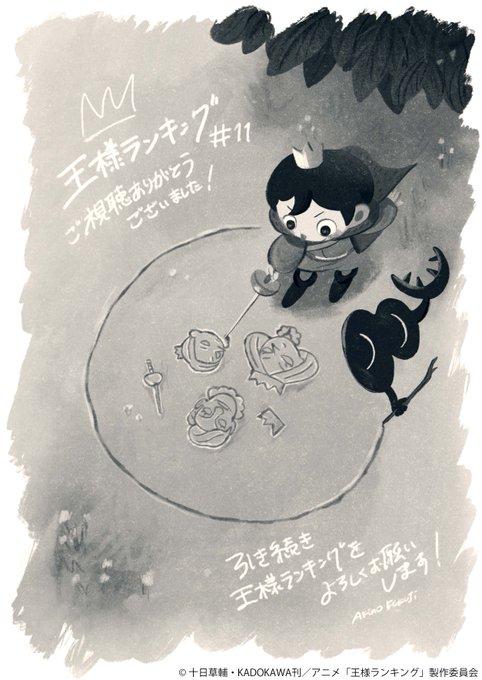 王様ランキング #11
ご視聴ありがとう
ございました!
引き続き
王様ランキングを
よろしくお願い
します!
Akino Fukuji
© 十日草輔・KADOKAWA刊／アニメ「王様ランキング」製作委員会